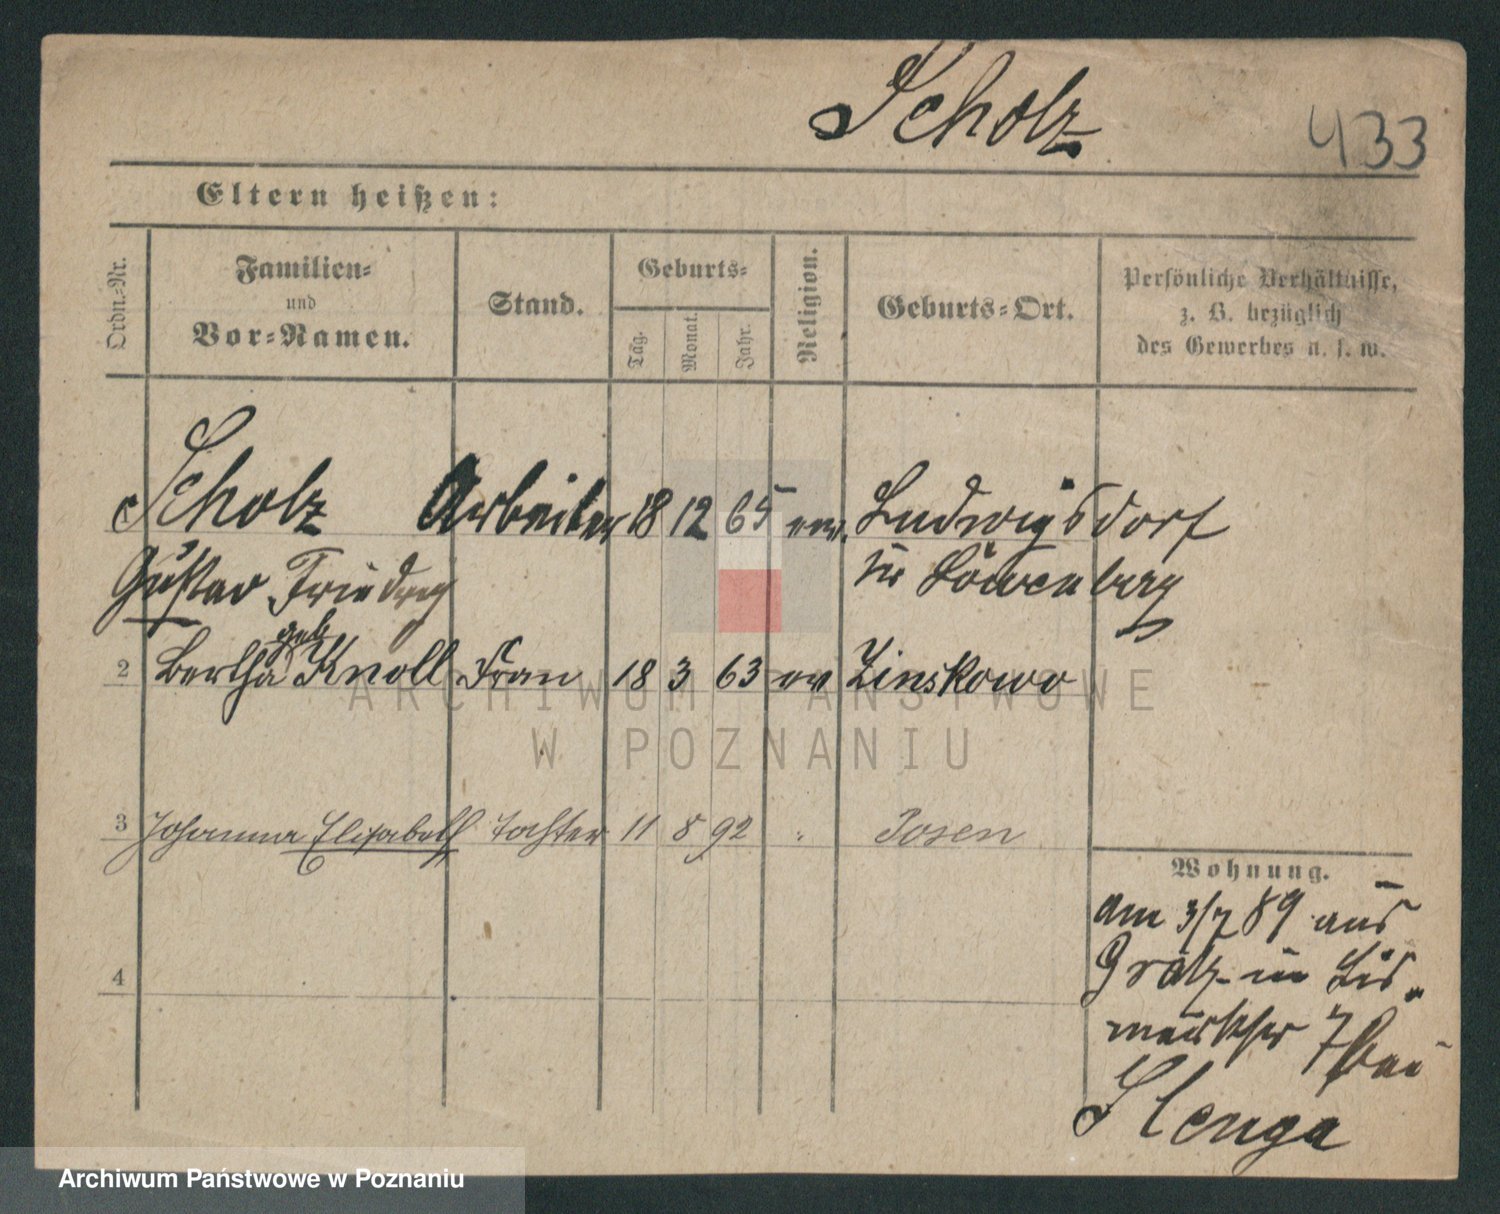 Scholz
433
Eltern heißen:
Ordn.-Nr.
Familien-
und
Vor-Namen.
Stand.
Geburts-
Tag.
Monat.
Jahr.
Religion.
Geburts-Ort.
Persönliche Verhältnisse,
z. B. bezüglich
des Gewerbes u. s. w.
Scholz Arbeiter 18 12 65 ev. Ludwigsdorf
Gustav Löwenberg
geb
2 Bertha Knoll Frau 18 3 63 ev Zinskowo
3 Johanna Elisabeth Tochter 11 8 92 " Posen
Wohnung.
am 3/7 89 aus
Grätz in
7 bei
4
Stenga
ARCHIWUM PAŃSTWOWE
W POZNANIU
Archiwum Państwowe w Poznaniu